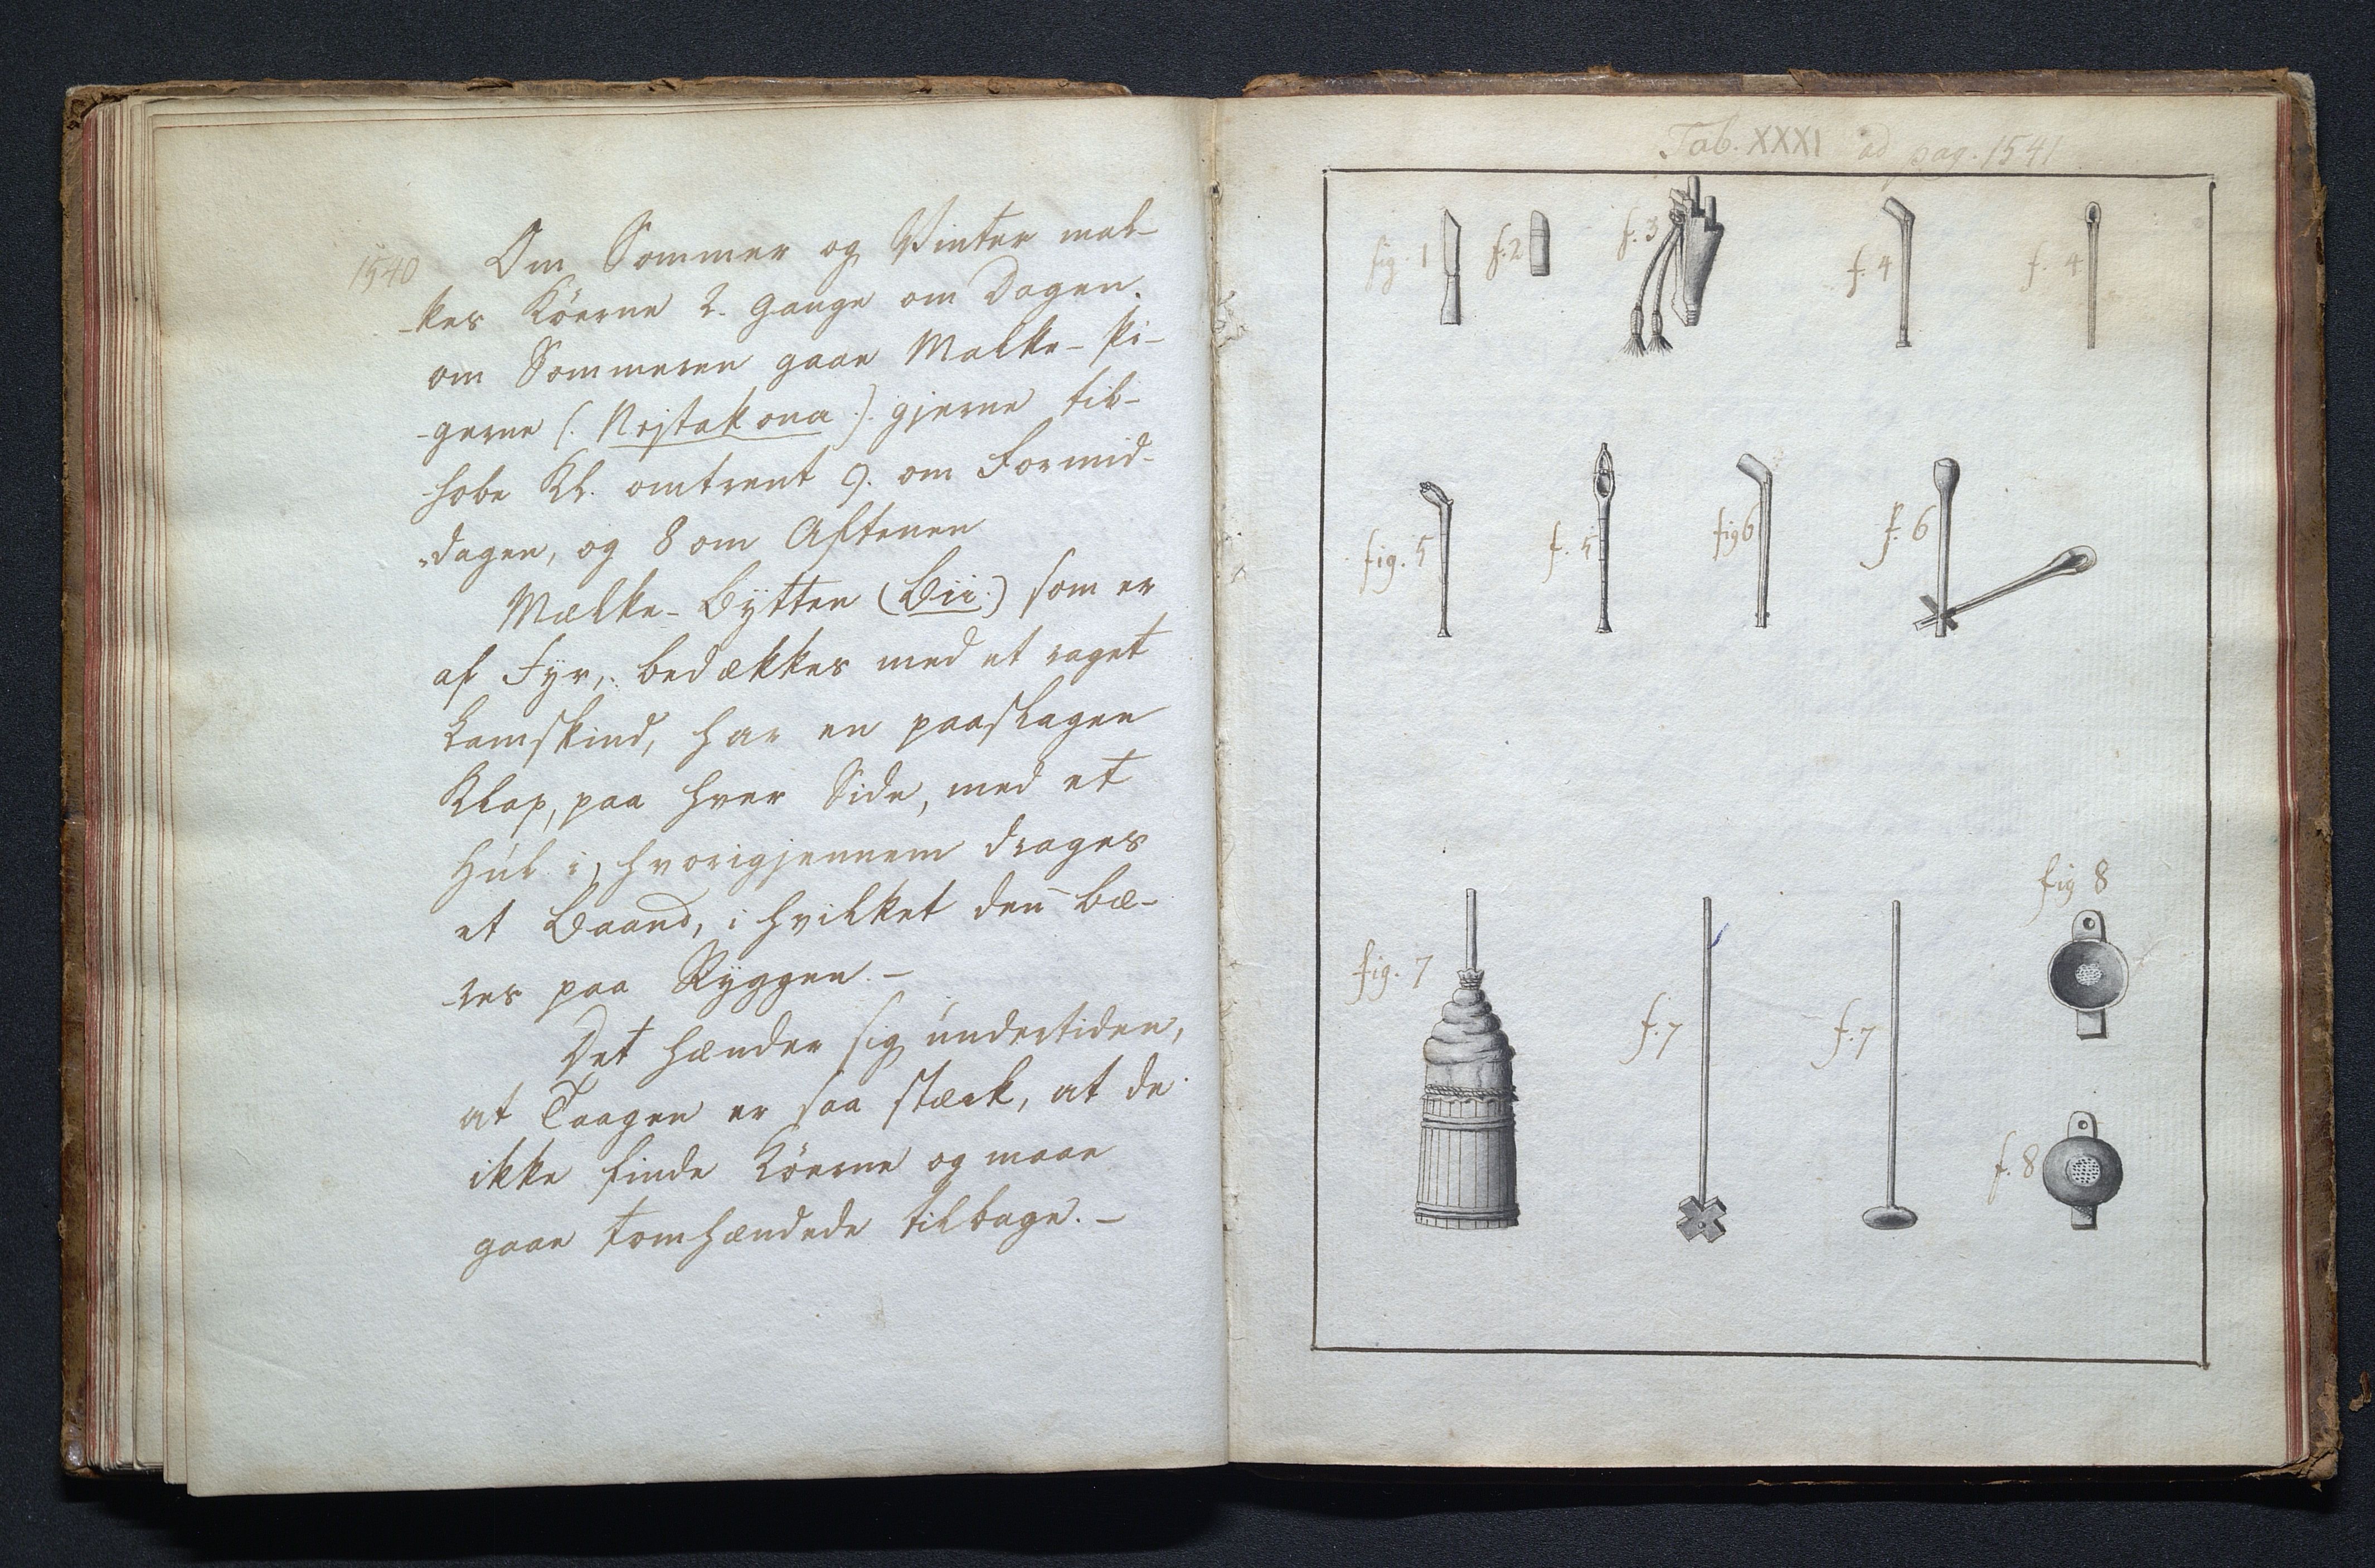 1540 Om Sommer og Vinter mal-
-kes Köerne 2. Gange om Dagen.
om Sommeren gaae Malke-Pi-
-gerne (: Nejtakona :) gjerne til-
-hobe Kl. omtrent 9. om Formid-
-dagen, og 8 om Aftenen
Mælke-Bÿtten (Bii:) som er
af Fyr, bedækkes med et raget
Lamskind, har en paaslagen
Klap, paa hver Side, med et
Hul i, hvorigjennem drages
et Baand, i hvilket den bæ-
-res paa Ryggen. –
Det hænder sig undertiden,
at Taagen er saa stærk, at de
ikke finde Köerne og maae
gaae tomhændede tilbage. –
Tab. XXXI ad pag. 1541
fig. 1 f. 2 f. 3 f. 4 f. 4
fig. 5 f. 5 fig 6 f. 6
fig 8
fig. 7 f. 7 f. 7
f. 8